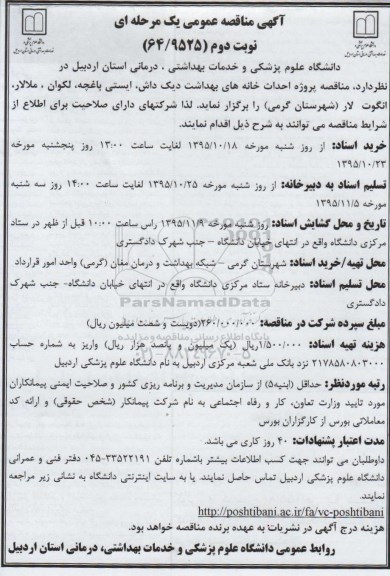 آگهی مناقصه عمومی یک مرحله ای
نوبت دوم (۶۴/۹۵۲۵)
دانشگاه علوم پزشکی و خدمات بهداشتی ، درمانی استان اردبیل در
نظردارد، مناقصه پروژه احداث خانه های بهداشت دیک داش، ایستی یاغچه، لکوان ، ملالار،
انگوت لار (شهرستان گرمی) را برگزار نماید. لذا شرکتهای دارای صلاحیت برای اطلاع از
شرایط مناقصه می توانند به شرح ذیل اقدام نمایند.
خرید اسناد: از روز شنبه مورخه ۱۳۹۵/۱۰/۱۸ لغایت ساعت ۱۳:۰۰ روز پنجشنبه مورخه
۱۳۹۵/۱۰/۲۳
تسلیم اسناد به دبیرخانه: از روز شنبه مورخه ۱۳۹۵/۱۰/۲۵ لغایت ساعت ۱۴:۰۰ روز سه شنبه
مورخه ۱۳۹۵/۱۱/۵
تاریخ و محل گشایش اسناد: روز شنبه مورخه ۱۳۹۵/۱۱/۹ راس ساعت ۱۰:۰۰ قبل از ظهر در ستاد
مرکزی دانشگاه واقع در انتهای خیابان دانشگاه – جنب شهرک دادگستری
محل تهیه/خرید اسناد: شهرستان گرمی –شبکه بهداشت و درمان مغان (گرمی) واحد امور قرارداد
محل تسلیم اسناد: دبیرخانه ستاد مرکزی دانشگاه واقع در انتهای خیابان دانشگاه- جنب شهرک
دادگستری
مبلغ سپرده شرکت در مناقصه: ۲۶۰/۰۰۰/۰۰۰(دویست و شصت میلیون ریال)
هزینه تهیه اسناد: ۱/۵۰۰/۰۰۰ریال (یک میلیون و پانصد هزار ریال) واریز به شماره حساب
۲۱۷۸۵۸۰۸۰۳۰۰۰ نزد بانک ملی شعبه مرکزی اردبیل به نام دانشگاه علوم پزشکی اردبیل
رتبه موردنظر: حداقل (ابنیه۵) از سازمان مدیریت و برنامه ریزی کشور و صلاحیت ایمنی پیمانکاران
مورد تایید وزارت تعاون، کار و رفاه اجتماعی به نام شرکت پیمانکار (شخص حقوقی) و ارائه کد
معاملاتی بورس از کارگزاران بورس
مدت اعتبار پشنهادات: ۴۰ روز کاری می باشد.
داوطلبان می توانند جهت کسب اطلاعات بیشتر باشماره تلفن ۳۳۵۲۲۱۹۱-۰۴۵ دفتر فنی و عمرانی
دانشگاه علوم پزشکی اردبیل تماس حاصل نمایند. یا به سایت اینترنتی دانشگاه به نشانی زیر مراجعه
نمایند.
http://poshtibani.ac.ir/fa/vc-poshtibani
هزینه درج آگهی در نشریات به عهده برنده مناقصه خواهد بود.
روابط عمومی دانشگاه علوم پزشکی و خدمات بهداشتی، درمانی استان اردبیل
ParsNamadData